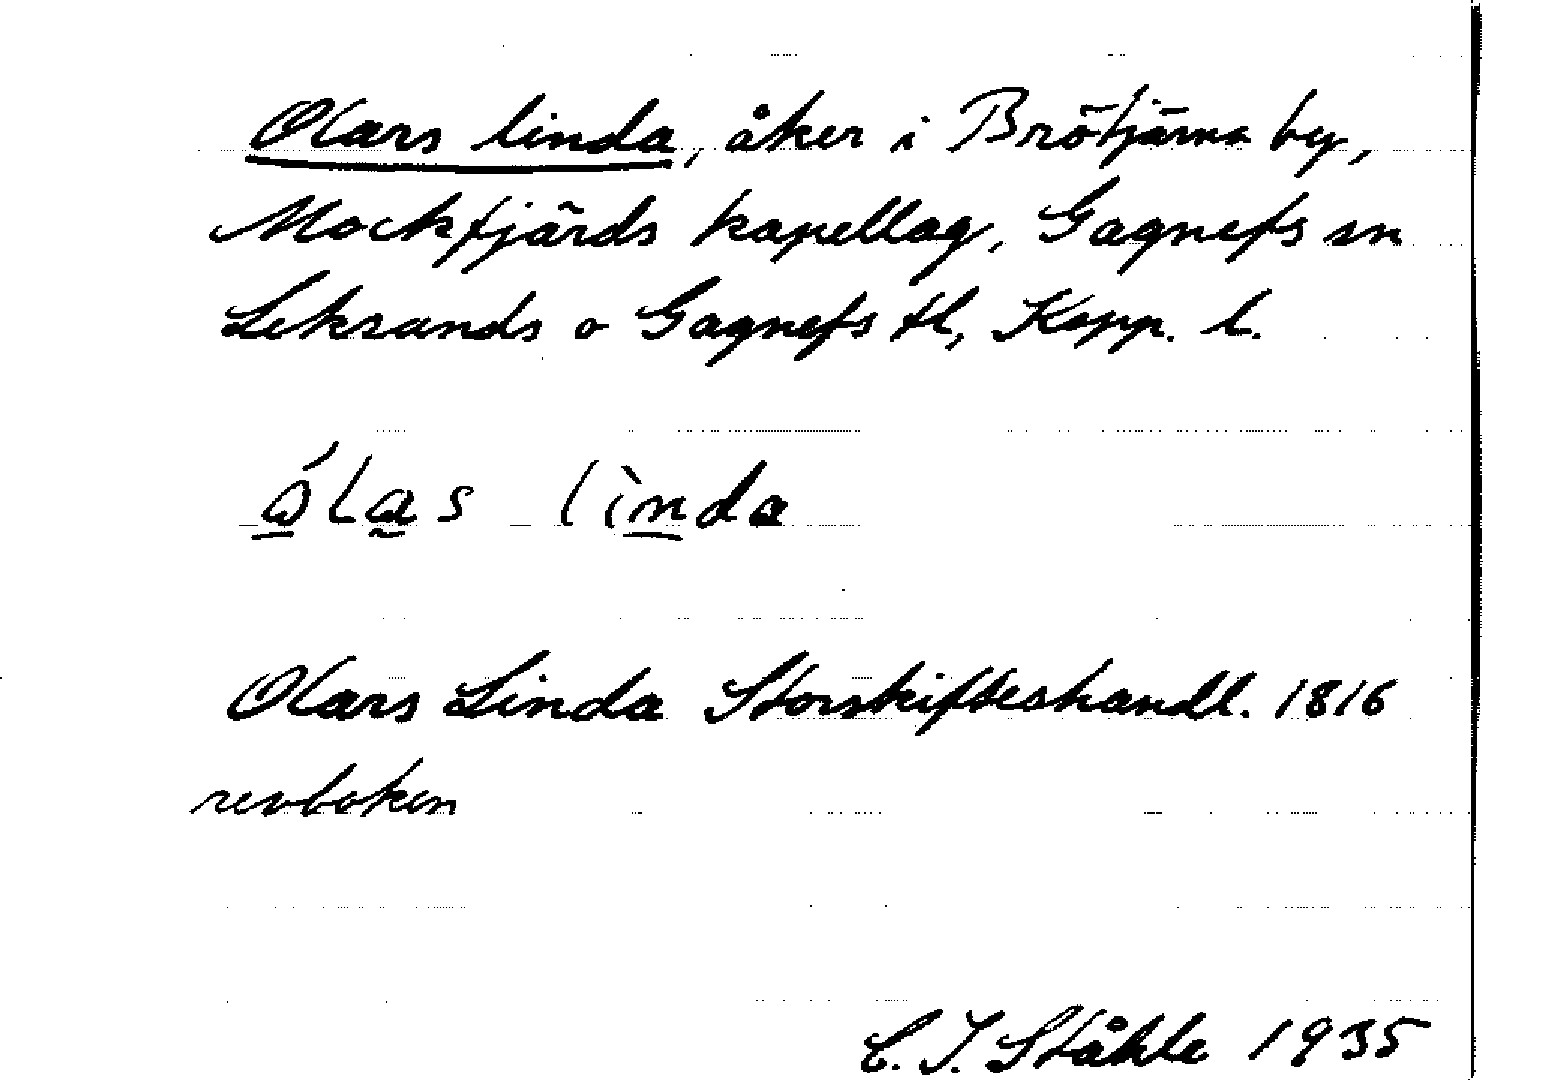 Olars linda, åker i Brötjärna by,
Mockfjärds kapellag, Gagnefs sn
Leksands o Gagnefs tl, Kopp. l.
ólas lìnda
Olars Linda Storskifteshandl. 1816
revboken
C. I. Ståhle 1935